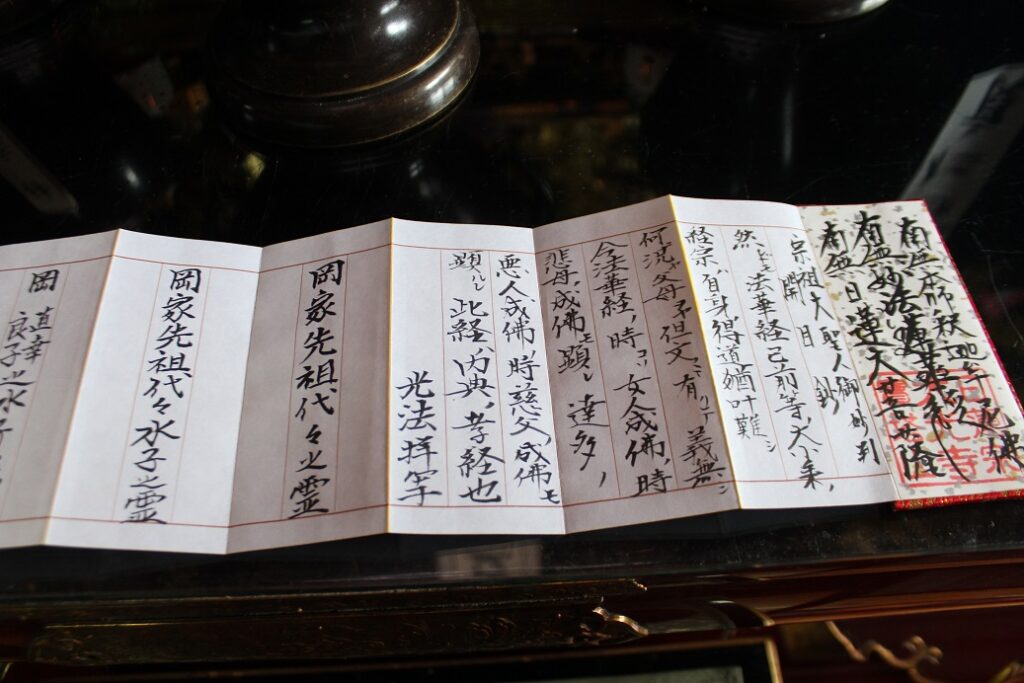 南無本師釈迦牟尼佛
南無妙法蓮華経
南無日蓮大菩薩
宗祖大聖人御妙判
開目鈔
然ドモ法華経已前等ノ大小乗ノ
経宗ハ自身得道猶叶難シ
何況ヤ父母ヲヤ但文ノミ有リテ義無シ
今法華経ノ時コソ女人成佛ノ時
悲母ノ成佛モ顕レ達多ノ
悪人成佛ノ時慈父ノ成佛モ
顕ルレ此経ハ内典ノ孝経也
光法拝写
岡家先祖代々之霊
岡家先祖代々水子之霊
岡 直幸
良子之水子